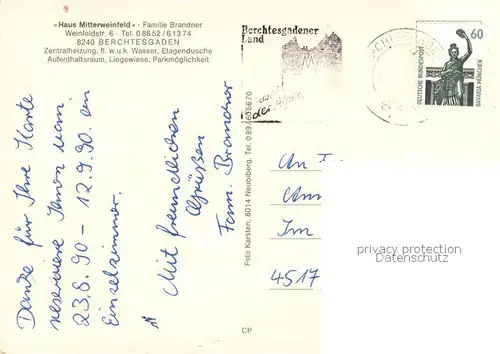 «Haus Mitterweinfeld» · Familie Brandner
Weinfeldstr. 6 · Tel. 08652/61374
8240 BERCHTESGADEN
Zentralheizung, fl. w.u.k. Wasser, Etagendusche
Aufenthaltsraum, Liegewiese, Parkmöglichkeit
Danke für Ihre Karte
reserviere Ihnen vom
23.8.90 – 12.9.90 ein
Einzelzimmer.
Mit freundlichen
Grüßen
Fam. Brandner
Foto Karsten, 8014 Neubiberg, Tel. 0 89
CP
Berchtesgadener
Land
der Alpen
60
DEUTSCHE BUNDESPOST
BAVARIA MÜNCHEN
An
Im
4517
privacy protection
Datenschutz